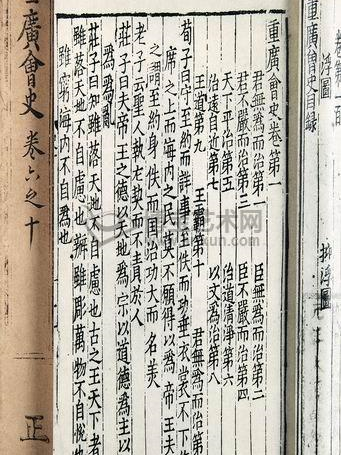 重廣會史目録
浮圖
排浮圖
重廣會史卷第一
君無爲而治第一　臣無爲而治第二
君不嚴而治第三　臣不嚴而治第四
天下平治第五　治道清淨第六
治遠自近第七　以文爲治第八
王道第九　王霸第十　君無爲而治第
荀子曰守至約而詳事至佚而功垂衣裳不下
席之上而海内之民莫不願得以爲帝王夫
之謂至約身佚而國治功大而名美
老子云聖人執左契而不責於人
爲爲
莊子曰夫帝王之德以天地爲宗以道德爲主以
莊子曰知雖落天地不自慮也古之王天下者
雖落天地不自慮也辨雖彫萬物不自悦也
雖窮海内不自爲也
廣會史
卷六之十
正